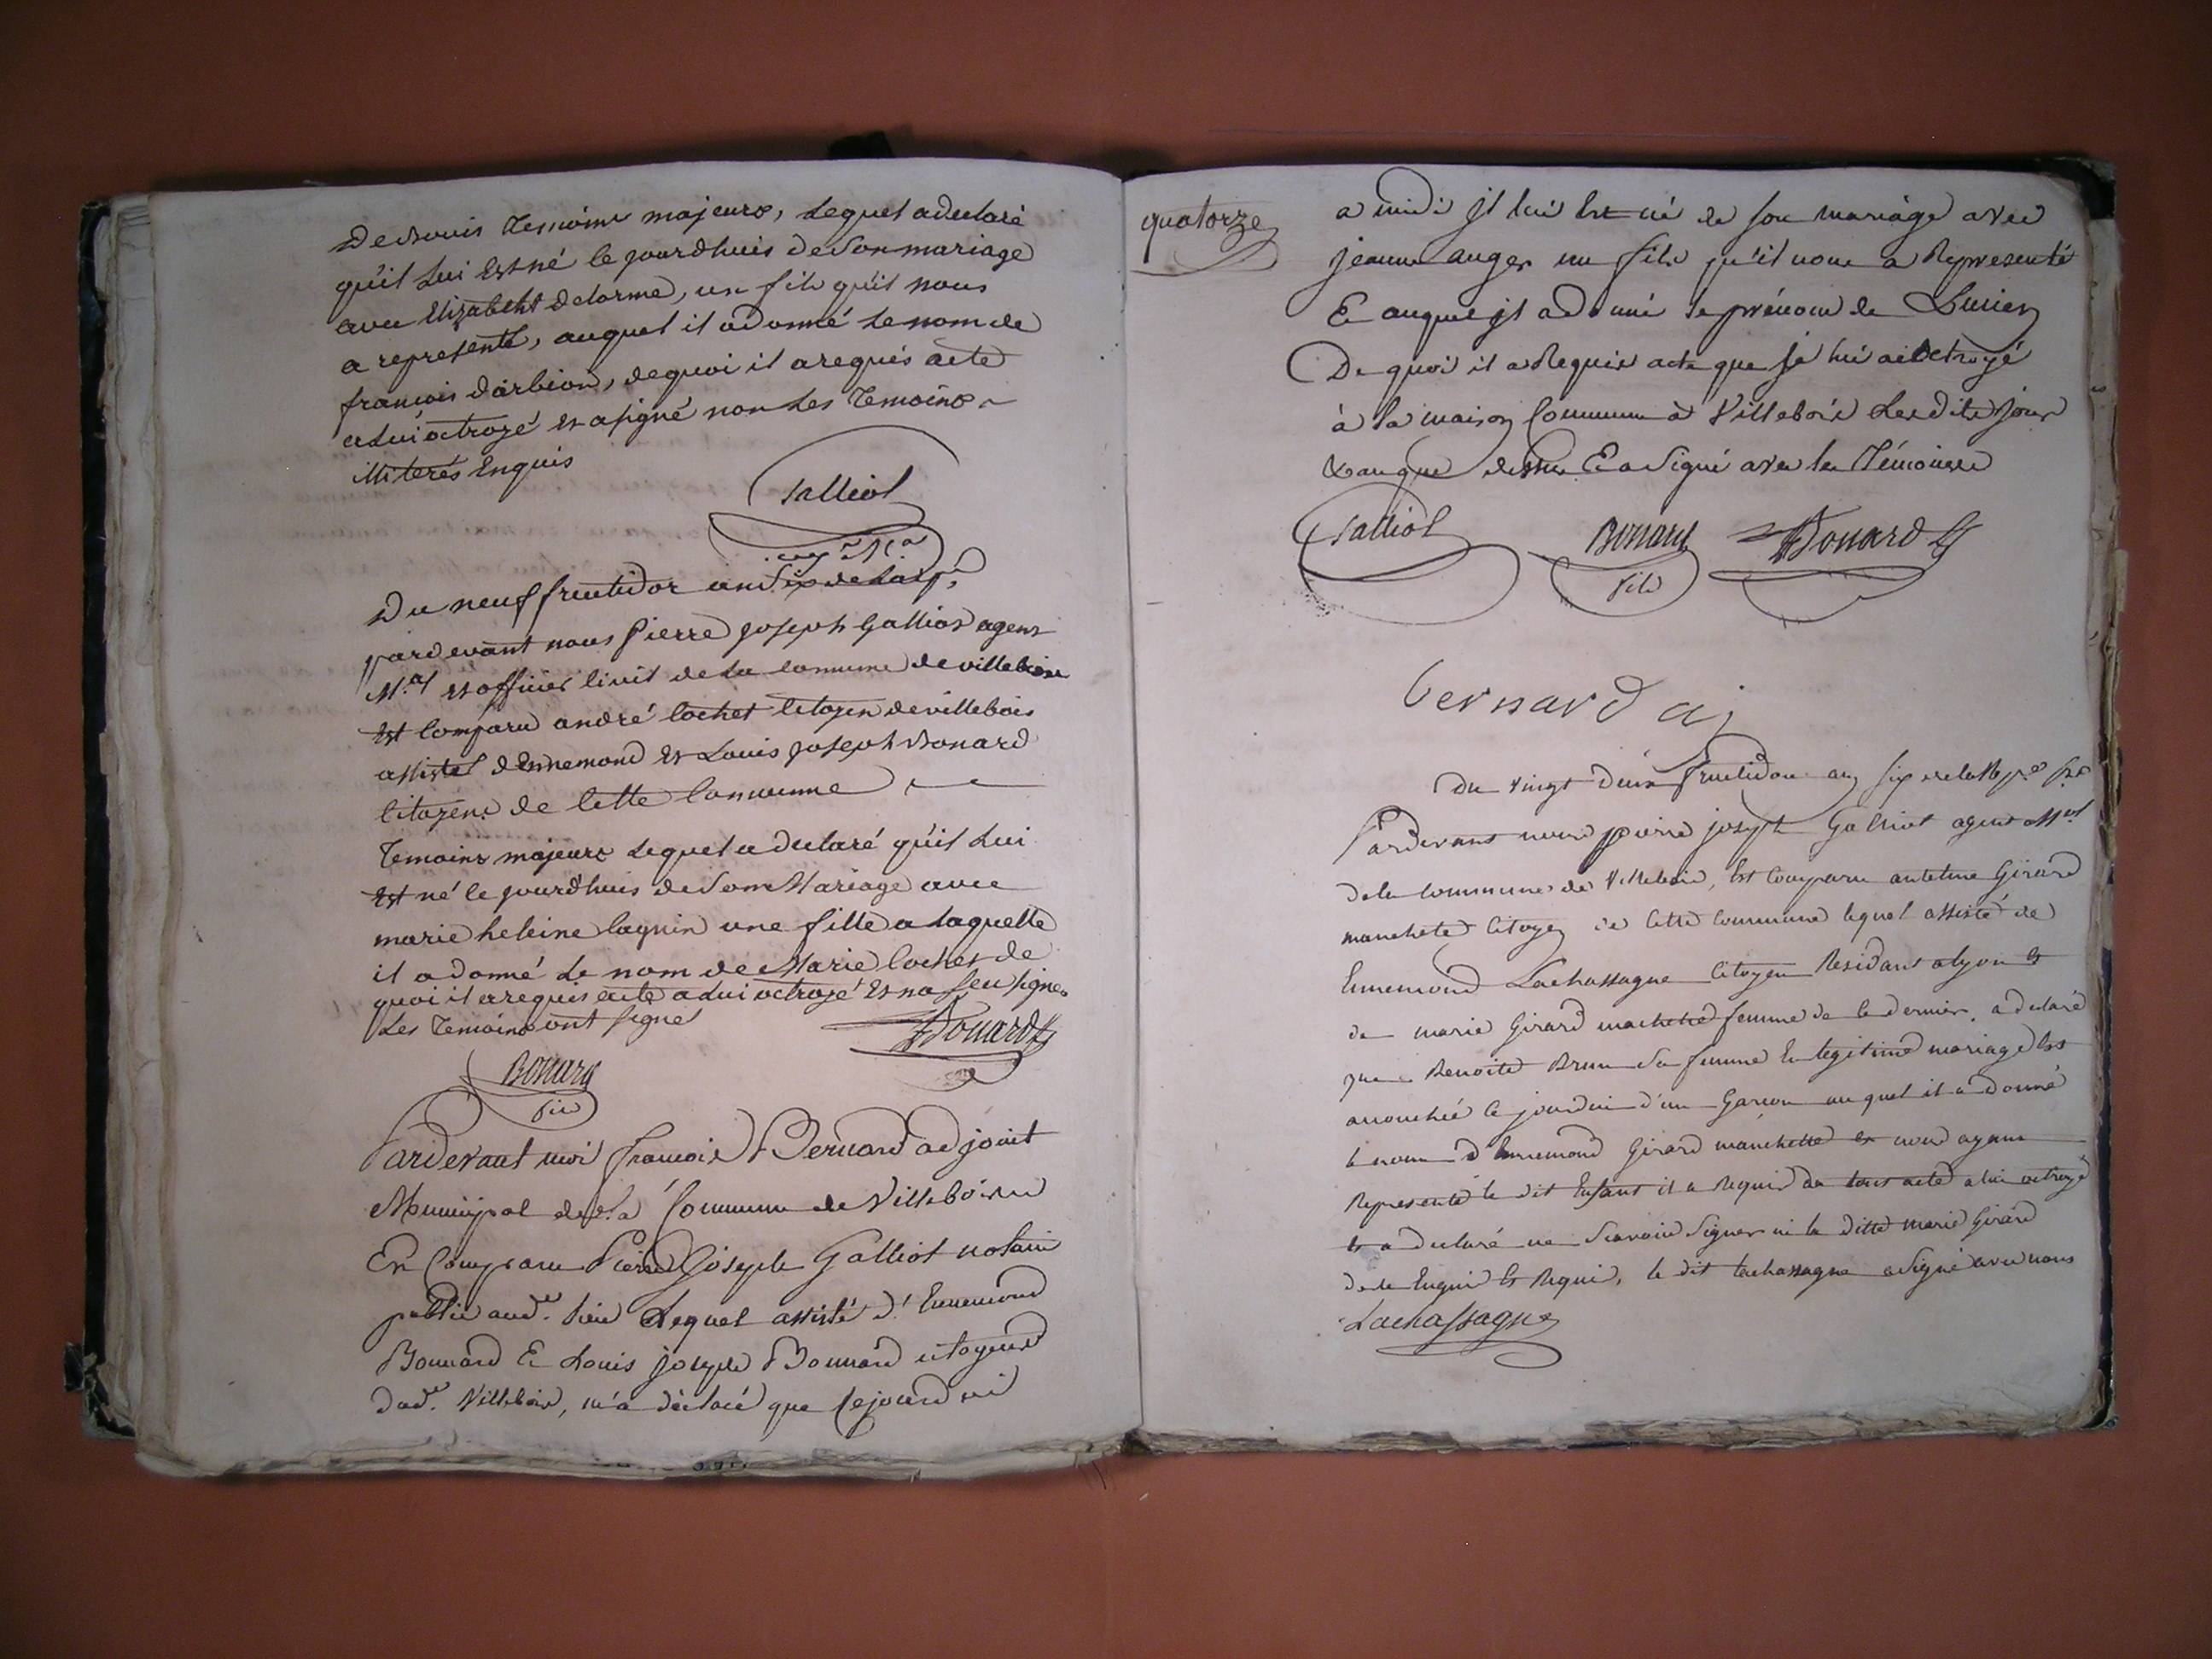 De Souis temoins majeurs, Lequel a declaré
qu'il Lui Est né le jourdhuis de Son mariage
avec Elizabeht delorme, un fils qu'il nous
a representé, auquel il a donné Le nom de
françois darbion, de quoi il a requis acte
a Lui octroyé et a signé non Les Temoins
illiterés Enquis
Galliot
ag. M.al
Du neuf fructidor an Six de La rep.e
pardevant nous pierre joseph Galliot agent
M.al et officier Civil de La Commune de villebois
Est Comparu andré Cochet Citoyen de villebois
assisté d'Ennemond et Louis joseph Bonard
Citoyens de Cette Commune
Temoins majeurs Lequel a declaré qu'il Lui
Est né le jourdhuis de Son Mariage avec
marie heleine laguin une fille a laquelle
il a donné Le nom de Marie Cochet de
quoi il a requis acte a Lui octroyé Et n'a seu signer
Les Temoins ont signé
Bonard
Bonard
fils
Pardevant moi françois Bernard adjoint
Municipal de La Commune de Villebois
Est Comparu Pierre Joseph Galliot notaire
public aud. lieu Lequel assisté d'Ennemond
Bonnard & Louis joseph Bonnard citoyens
dud. Villebois, m'a déclaré que Cejourdhui
quatorze
a midi jl lui Est né de son mariage avec
jeanne auger un fils qu'il nous a Représenté
E auquel jl a donné le prénom de Lucien
De quoi il a Requis acte que je lui ai Octroyé
à la maison Commune à Villebois Lesdits jour
& an que dessus E a Signé avec les Témoins
Galliot
Bonard
fils
Bonard
bernard aj
Du vingt deux fructidor an six de la Rep.e fr.e
Pardevant nous pierre joseph Galliot agent M.al
de la Commune de Villebois, Est Comparu antelme Girard
manchete Citoyen de Cette Commune lequel assisté de
Ennemond Lachassagne Citoyen Residant a lyon et
de marie Girard machete femme de Ce dernier, a declaré
que Benoite Brun Sa femme En legitime mariage Est
accouchée Ce jourdui d'un Garcon au quel il a donné
le nom d'Ennemond Girard manchette et nous ayant
Representé le dit Enfant il a Requis du tout acte a lui octroyé
Et a declaré ne Scavoir Signer ni la ditte marie Girard
de ce Enquis Et Requis, le dit lachassagne a Signé avec nous
Lachassagne